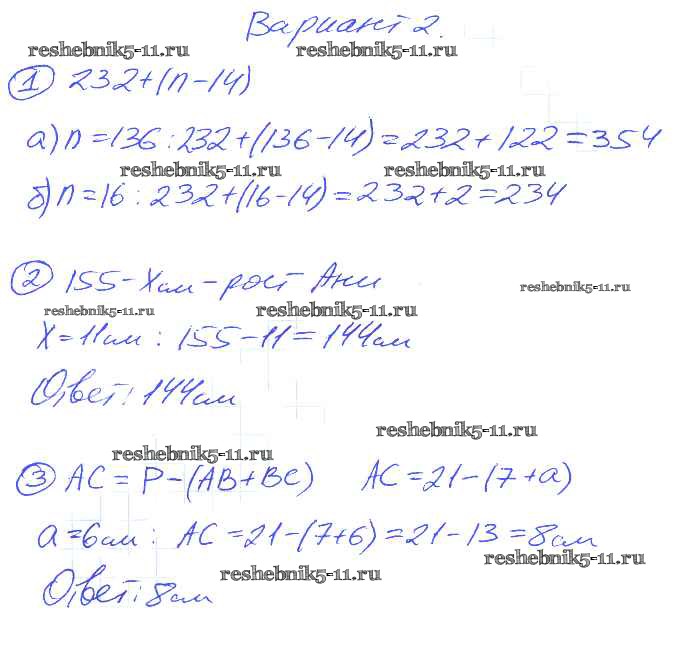 Вариант 2.
reshebnik5-11.ru reshebnik5-11.ru
1 232+(n-14)
а) n=136:232+(136-14)=232+122=354
reshebnik5-11.ru reshebnik5-11.ru
б) n=16: 232+(16-14)=232+2=234
2 155-Xсм-рост Ани
reshebnik5-11.ru
reshebnik5-11.ru reshebnik5-11.ru
X=11см: 155-11=144см
Ответ: 144см
reshebnik5-11.ru
reshebnik5-11.ru
3 AC=P-(AB+BC) AC=21-(7+a)
a=6см: AC=21-(7+6)=21-13=8см
reshebnik5-11.ru
reshebnik5-11.ru
Ответ: 8см